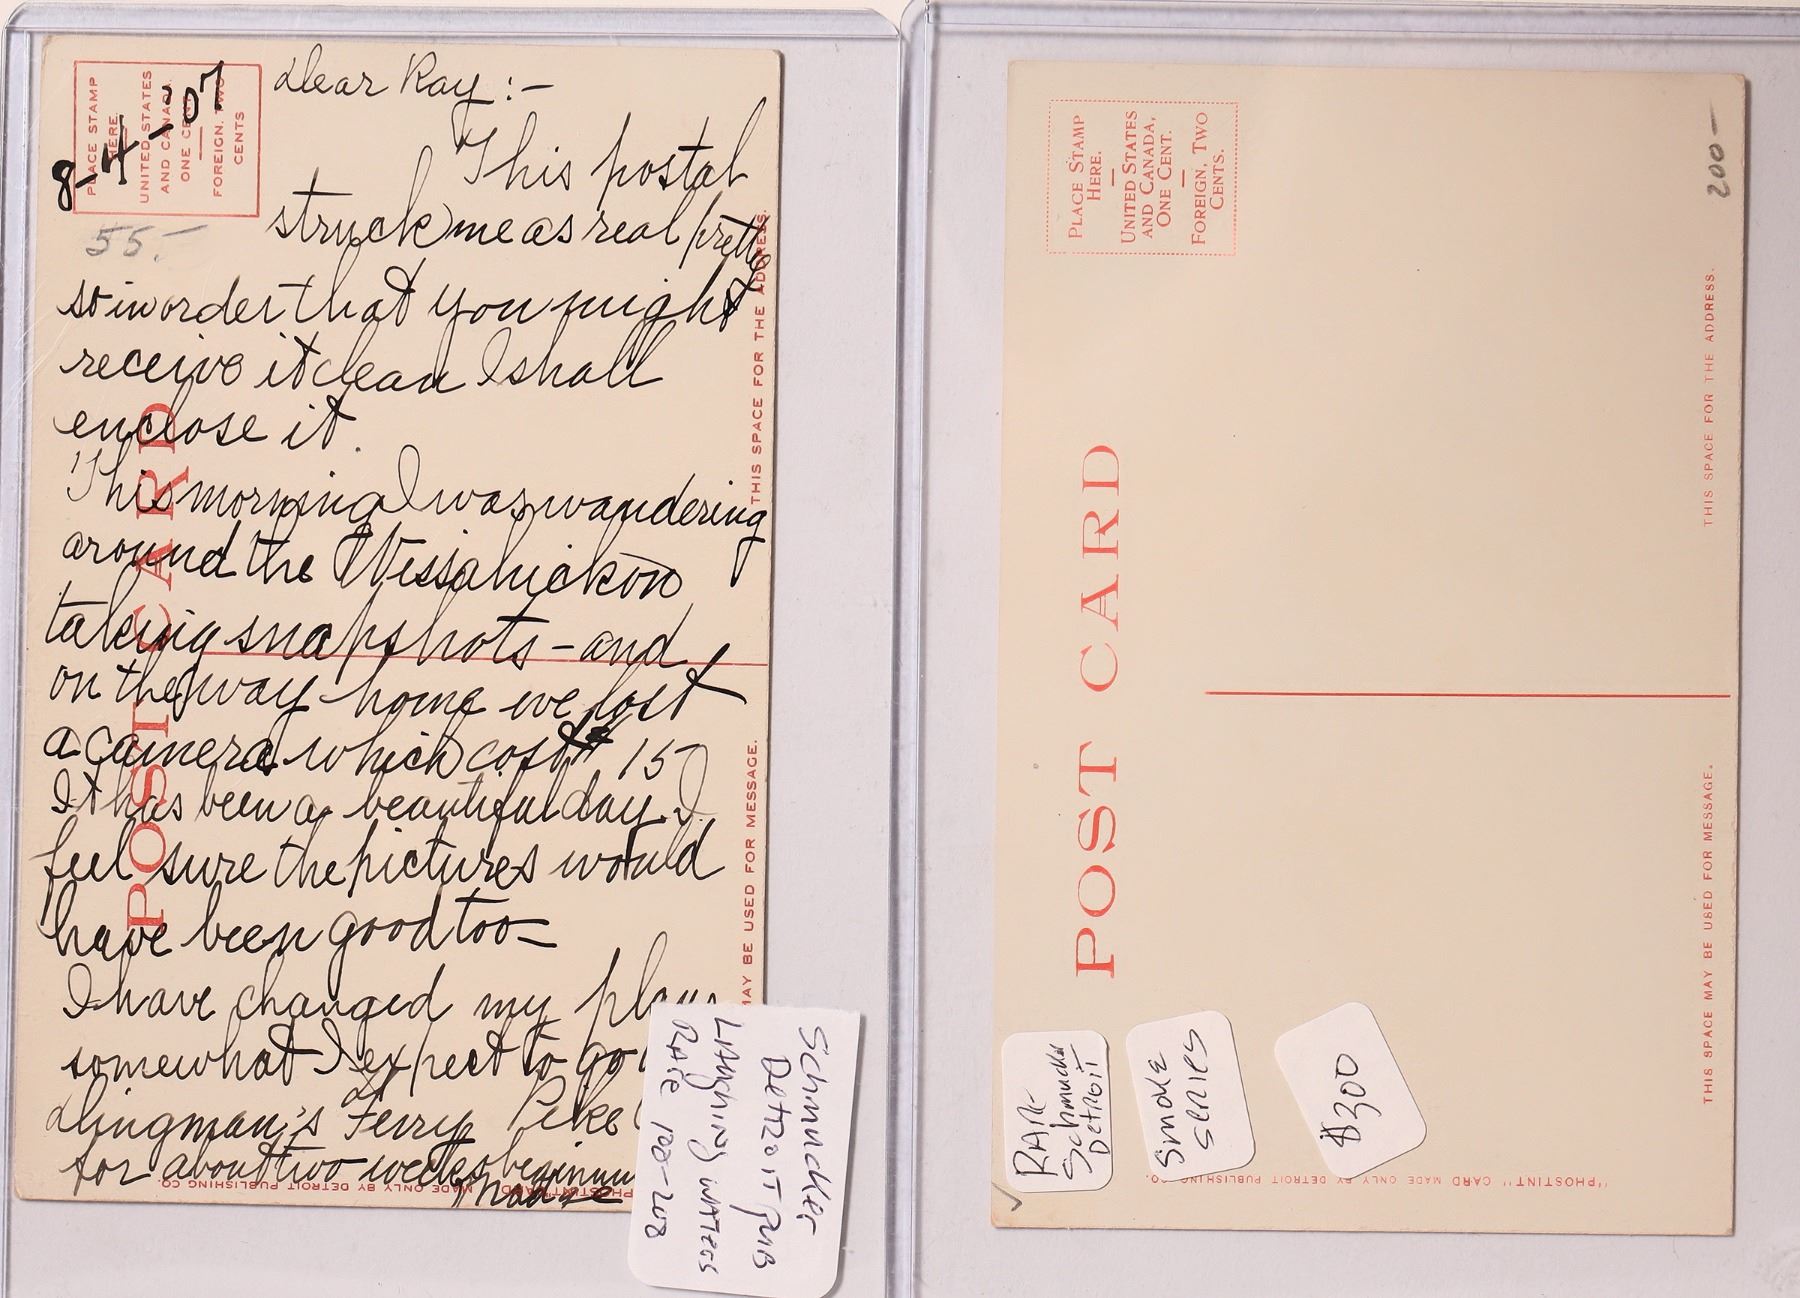 PLACE STAMP
HERE.
UNITED STATES
AND CANADA.
ONE CENT.
FOREIGN, TWO
CENTS
8-4-07
55.-
Dear Ray :-
This postal
struck me as real pretty
so in order that you might
receive it clean I shall
enclose it.
This morning I was wandering
around the Wissahickon
taking snapshots - and
on the way home we lost
a camera which cost $15-
It has been a beautiful day. I
feel sure the pictures would
have been good too -
I have changed my plans
somewhat I expect to go
Dingman's Ferry Pike
for about two weeks beginning
POST CARD
THIS SPACE FOR THE ADDRESS.
MAY BE USED FOR MESSAGE.
MADE ONLY BY DETROIT PUBLISHING CO.
Schmucker
Detroit Pub
Laughing Waters
RARE 150-200
PLACE STAMP
HERE.
UNITED STATES
AND CANADA,
ONE CENT.
FOREIGN, TWO
CENTS.
200-
POST CARD
THIS SPACE FOR THE ADDRESS.
THIS SPACE MAY BE USED FOR MESSAGE.
RARE
Schmucker
Detroit
Smoke
series
$300
"PHOSTINT" CARD MADE ONLY BY DETROIT PUBLISHING CO.